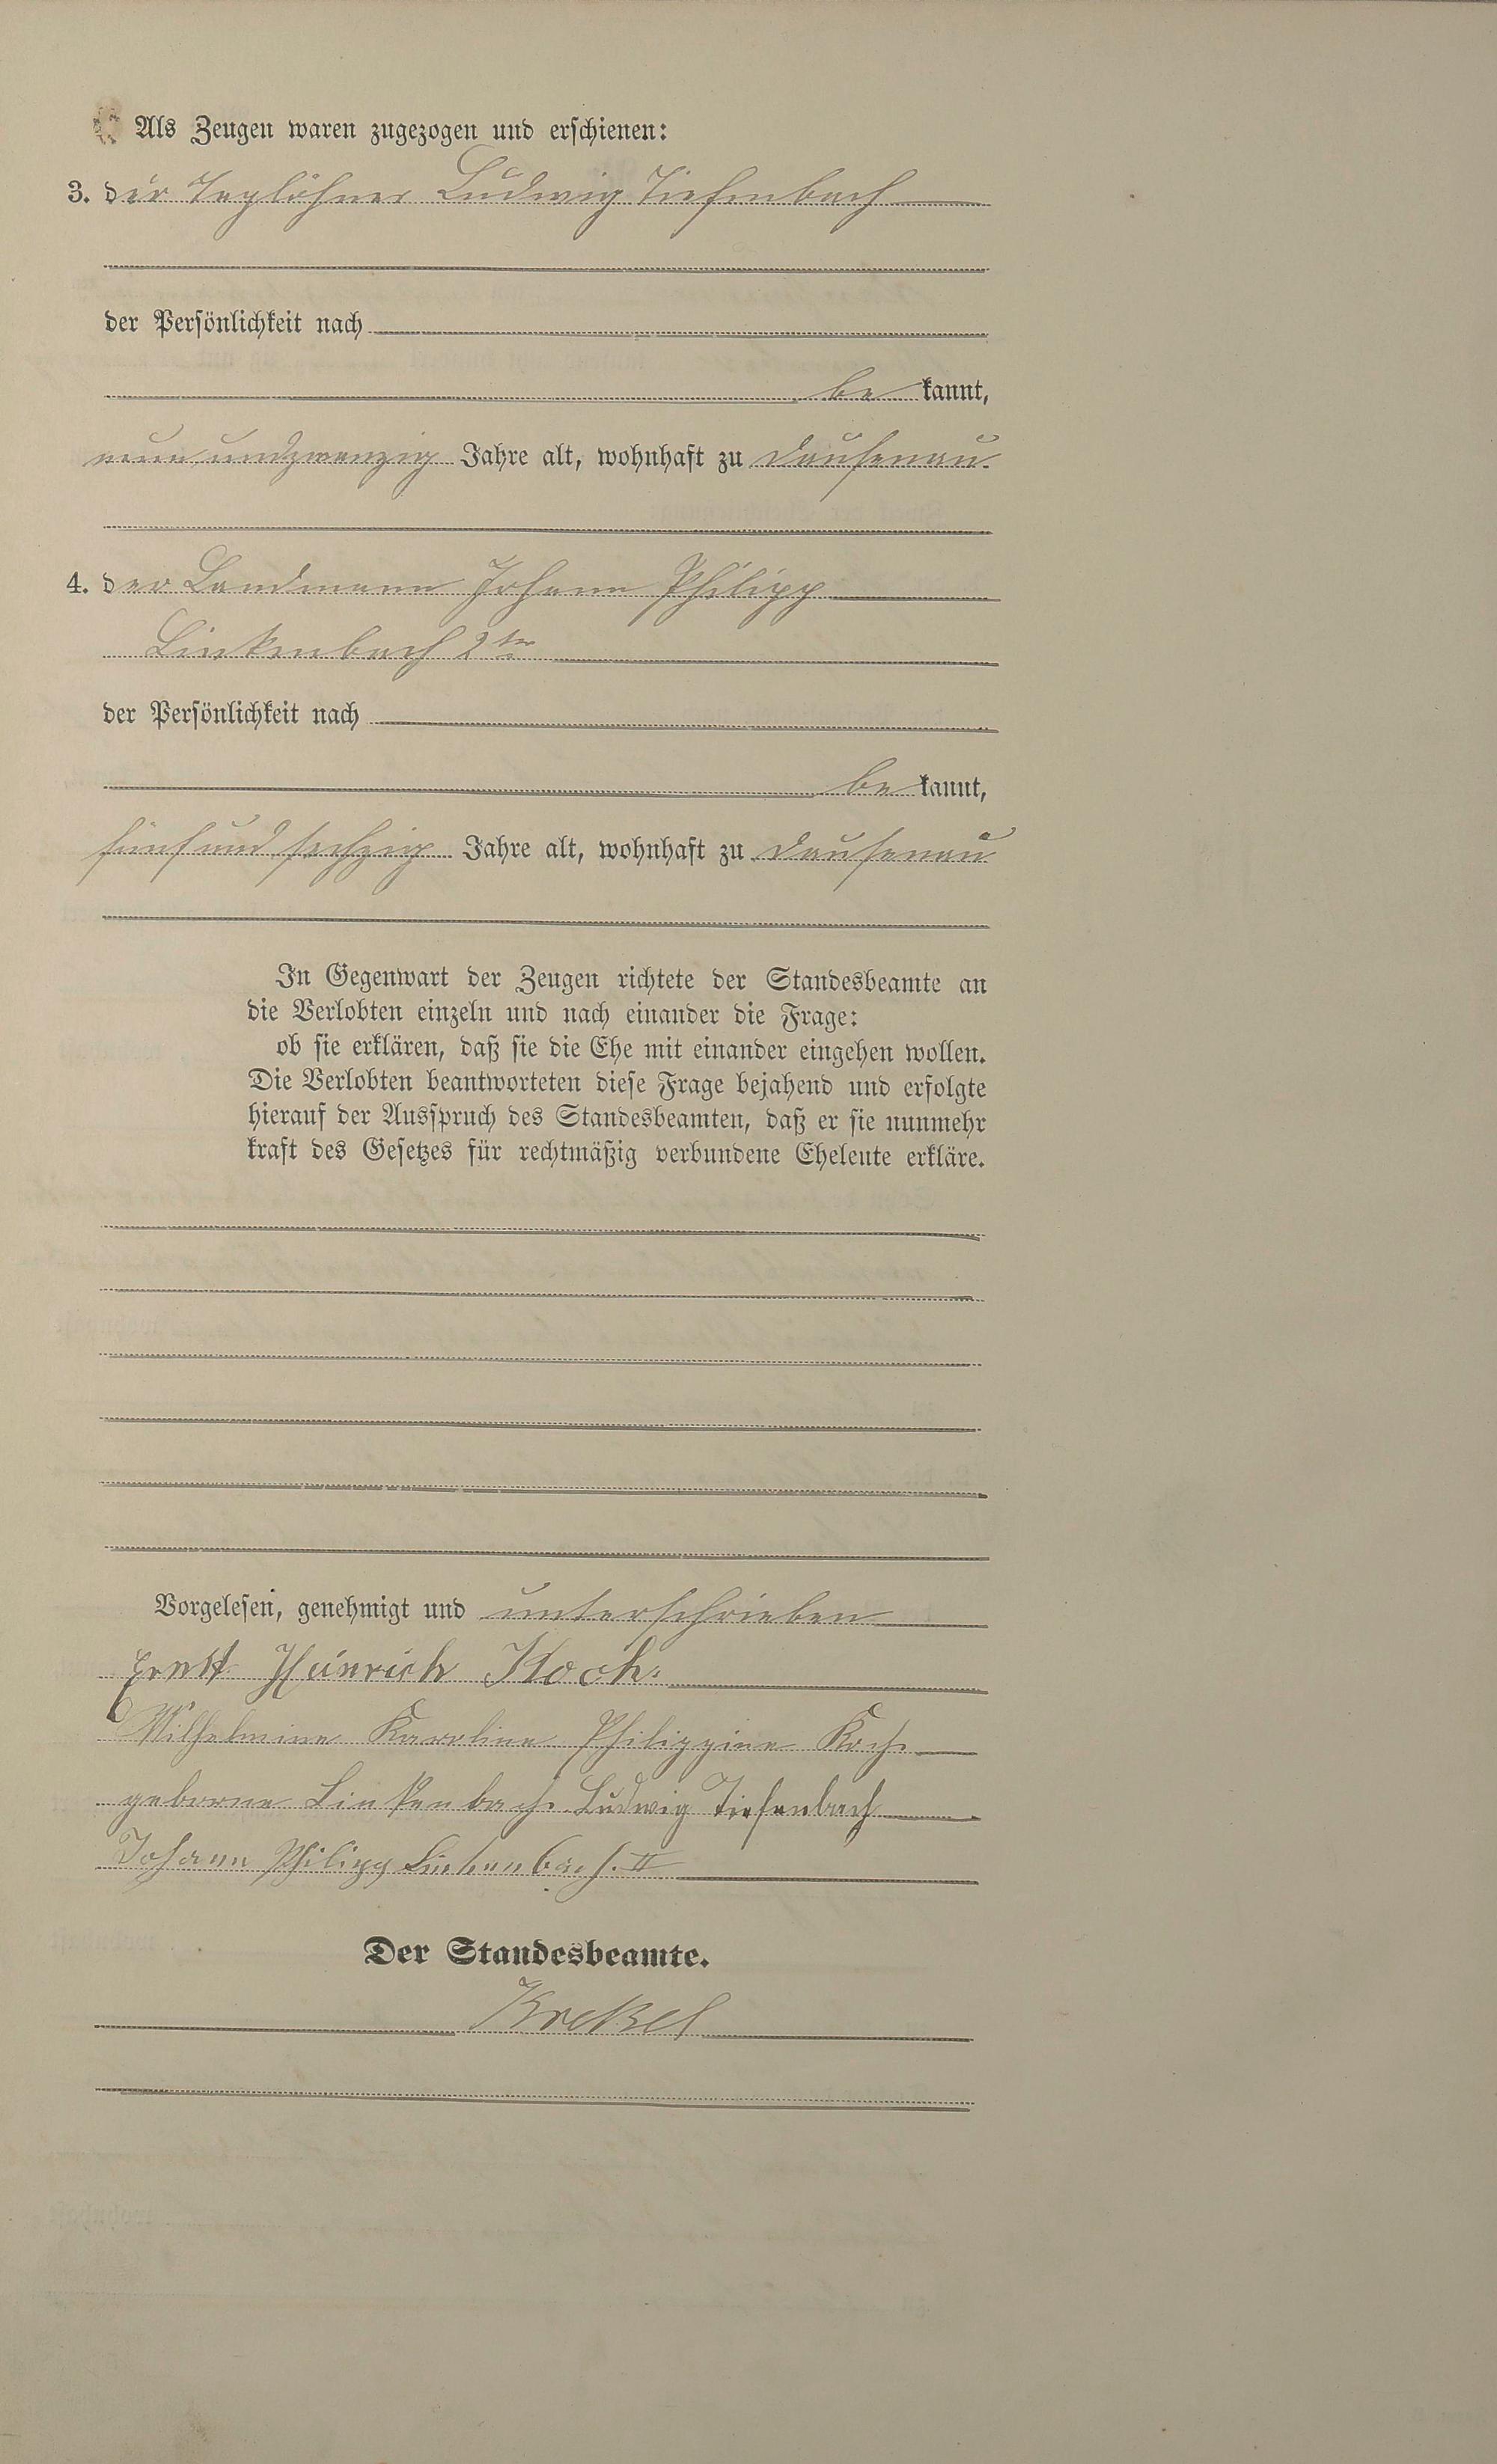 Als Zeugen waren zugezogen und erschienen:
3. der Taglöhner Ludwig Tiefenbach
der Persönlichkeit nach
be kannt,
neun und zwanzig Jahre alt, wohnhaft zu Dausenau
4. der Landmann Johann Philipp
Linkenbach 2ter
der Persönlichkeit nach
be kannt,
fünf und sechzig Jahre alt, wohnhaft zu Dausenau
In Gegenwart der Zeugen richtete der Standesbeamte an
die Verlobten einzeln und nach einander die Frage:
ob sie erklären, daß sie die Ehe mit einander eingehen wollen.
Die Verlobten beantworteten diese Frage bejahend und erfolgte
hierauf der Ausspruch des Standesbeamten, daß er sie nunmehr
kraft des Gesetzes für rechtmäßig verbundene Eheleute erkläre.
Vorgelesen, genehmigt und unterschrieben
Ernst Heinrich Koch.
Wilhelmine Karoline Philippine Koch
geborne Linkenbach. Ludwig Tiefenbach
Johann Philipp Linkenbach. II
Der Standesbeamte.
Krekel